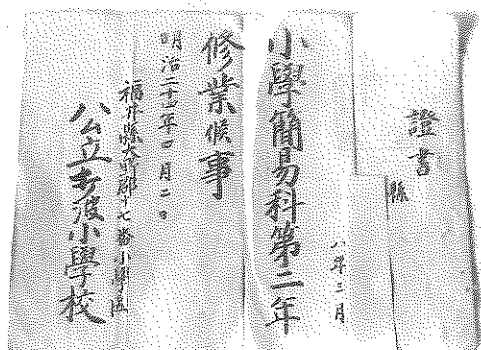 證書
縣
八年三月
小學簡易科第二年
修業候事
明治二十二年四月二日
福井縣大野郡十七番小學區
公立 波小學校